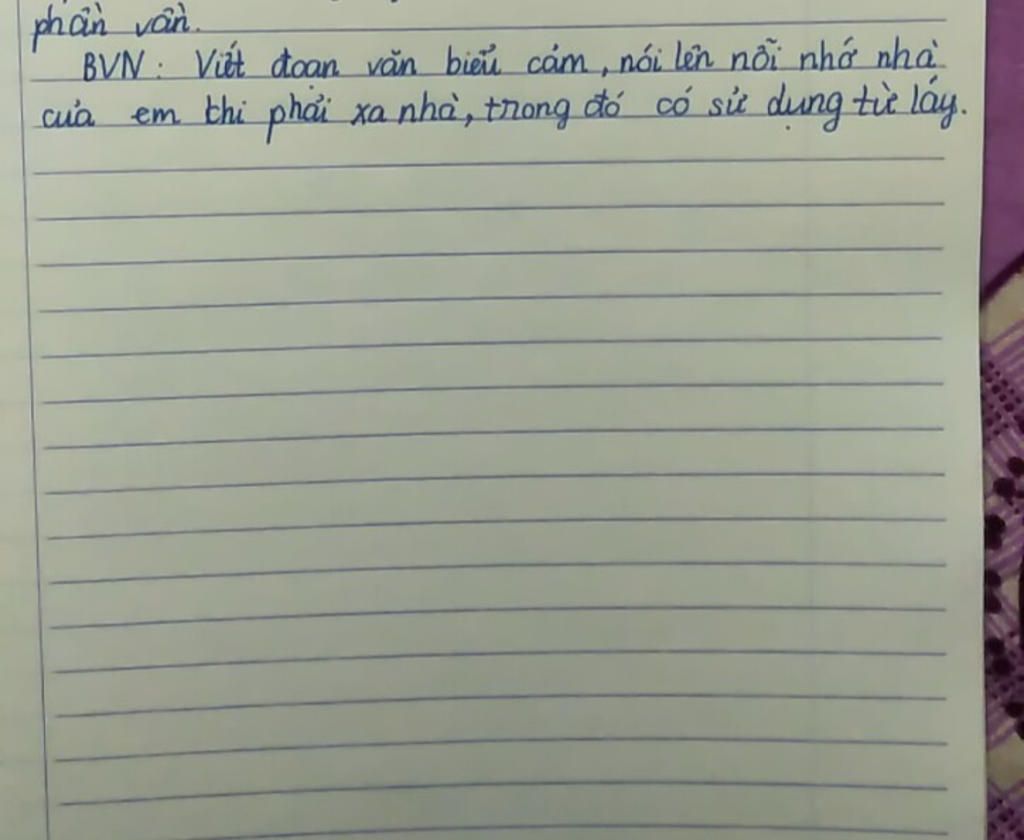 phân vân.
BVN: Viết đoạn văn biểu cảm, nói lên nỗi nhớ nhà
của em khi phải xa nhà, trong đó có sử dụng từ láy.